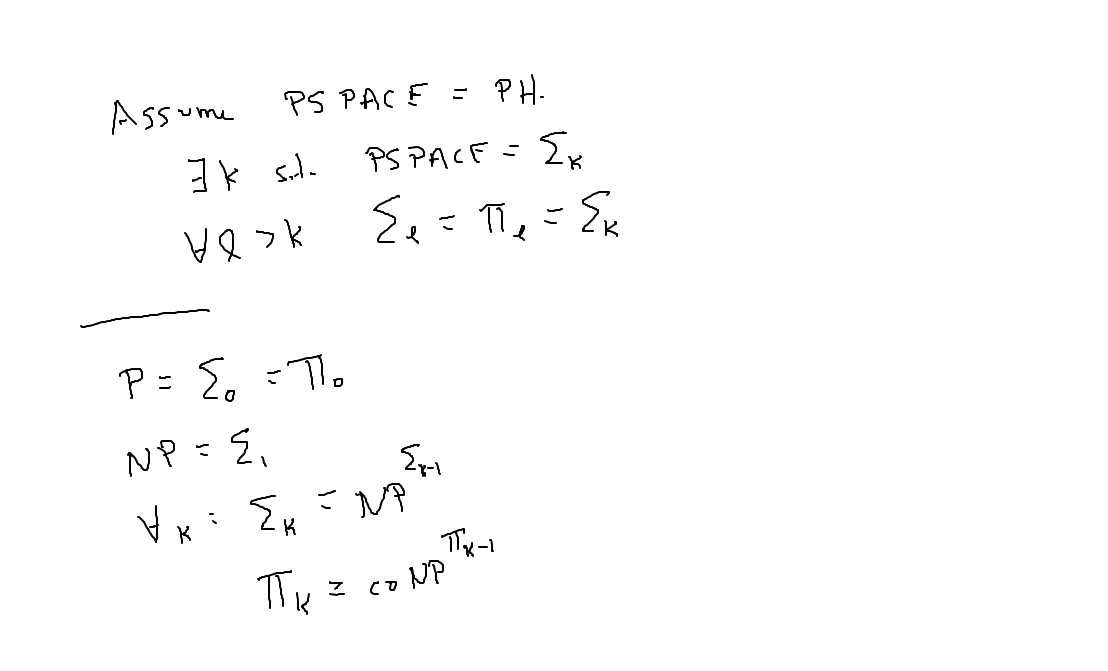 Assume PSPACE = PH.
∃k s.t. PSPACE = Σₖ
∀ℓ > k Σ_ℓ = Π_ℓ = Σₖ
P = Σ₀ = Π₀
NP = Σ₁
∀k : Σₖ = NP^{Σ_{k-1}}
Πₖ = coNP^{Π_{k-1}}